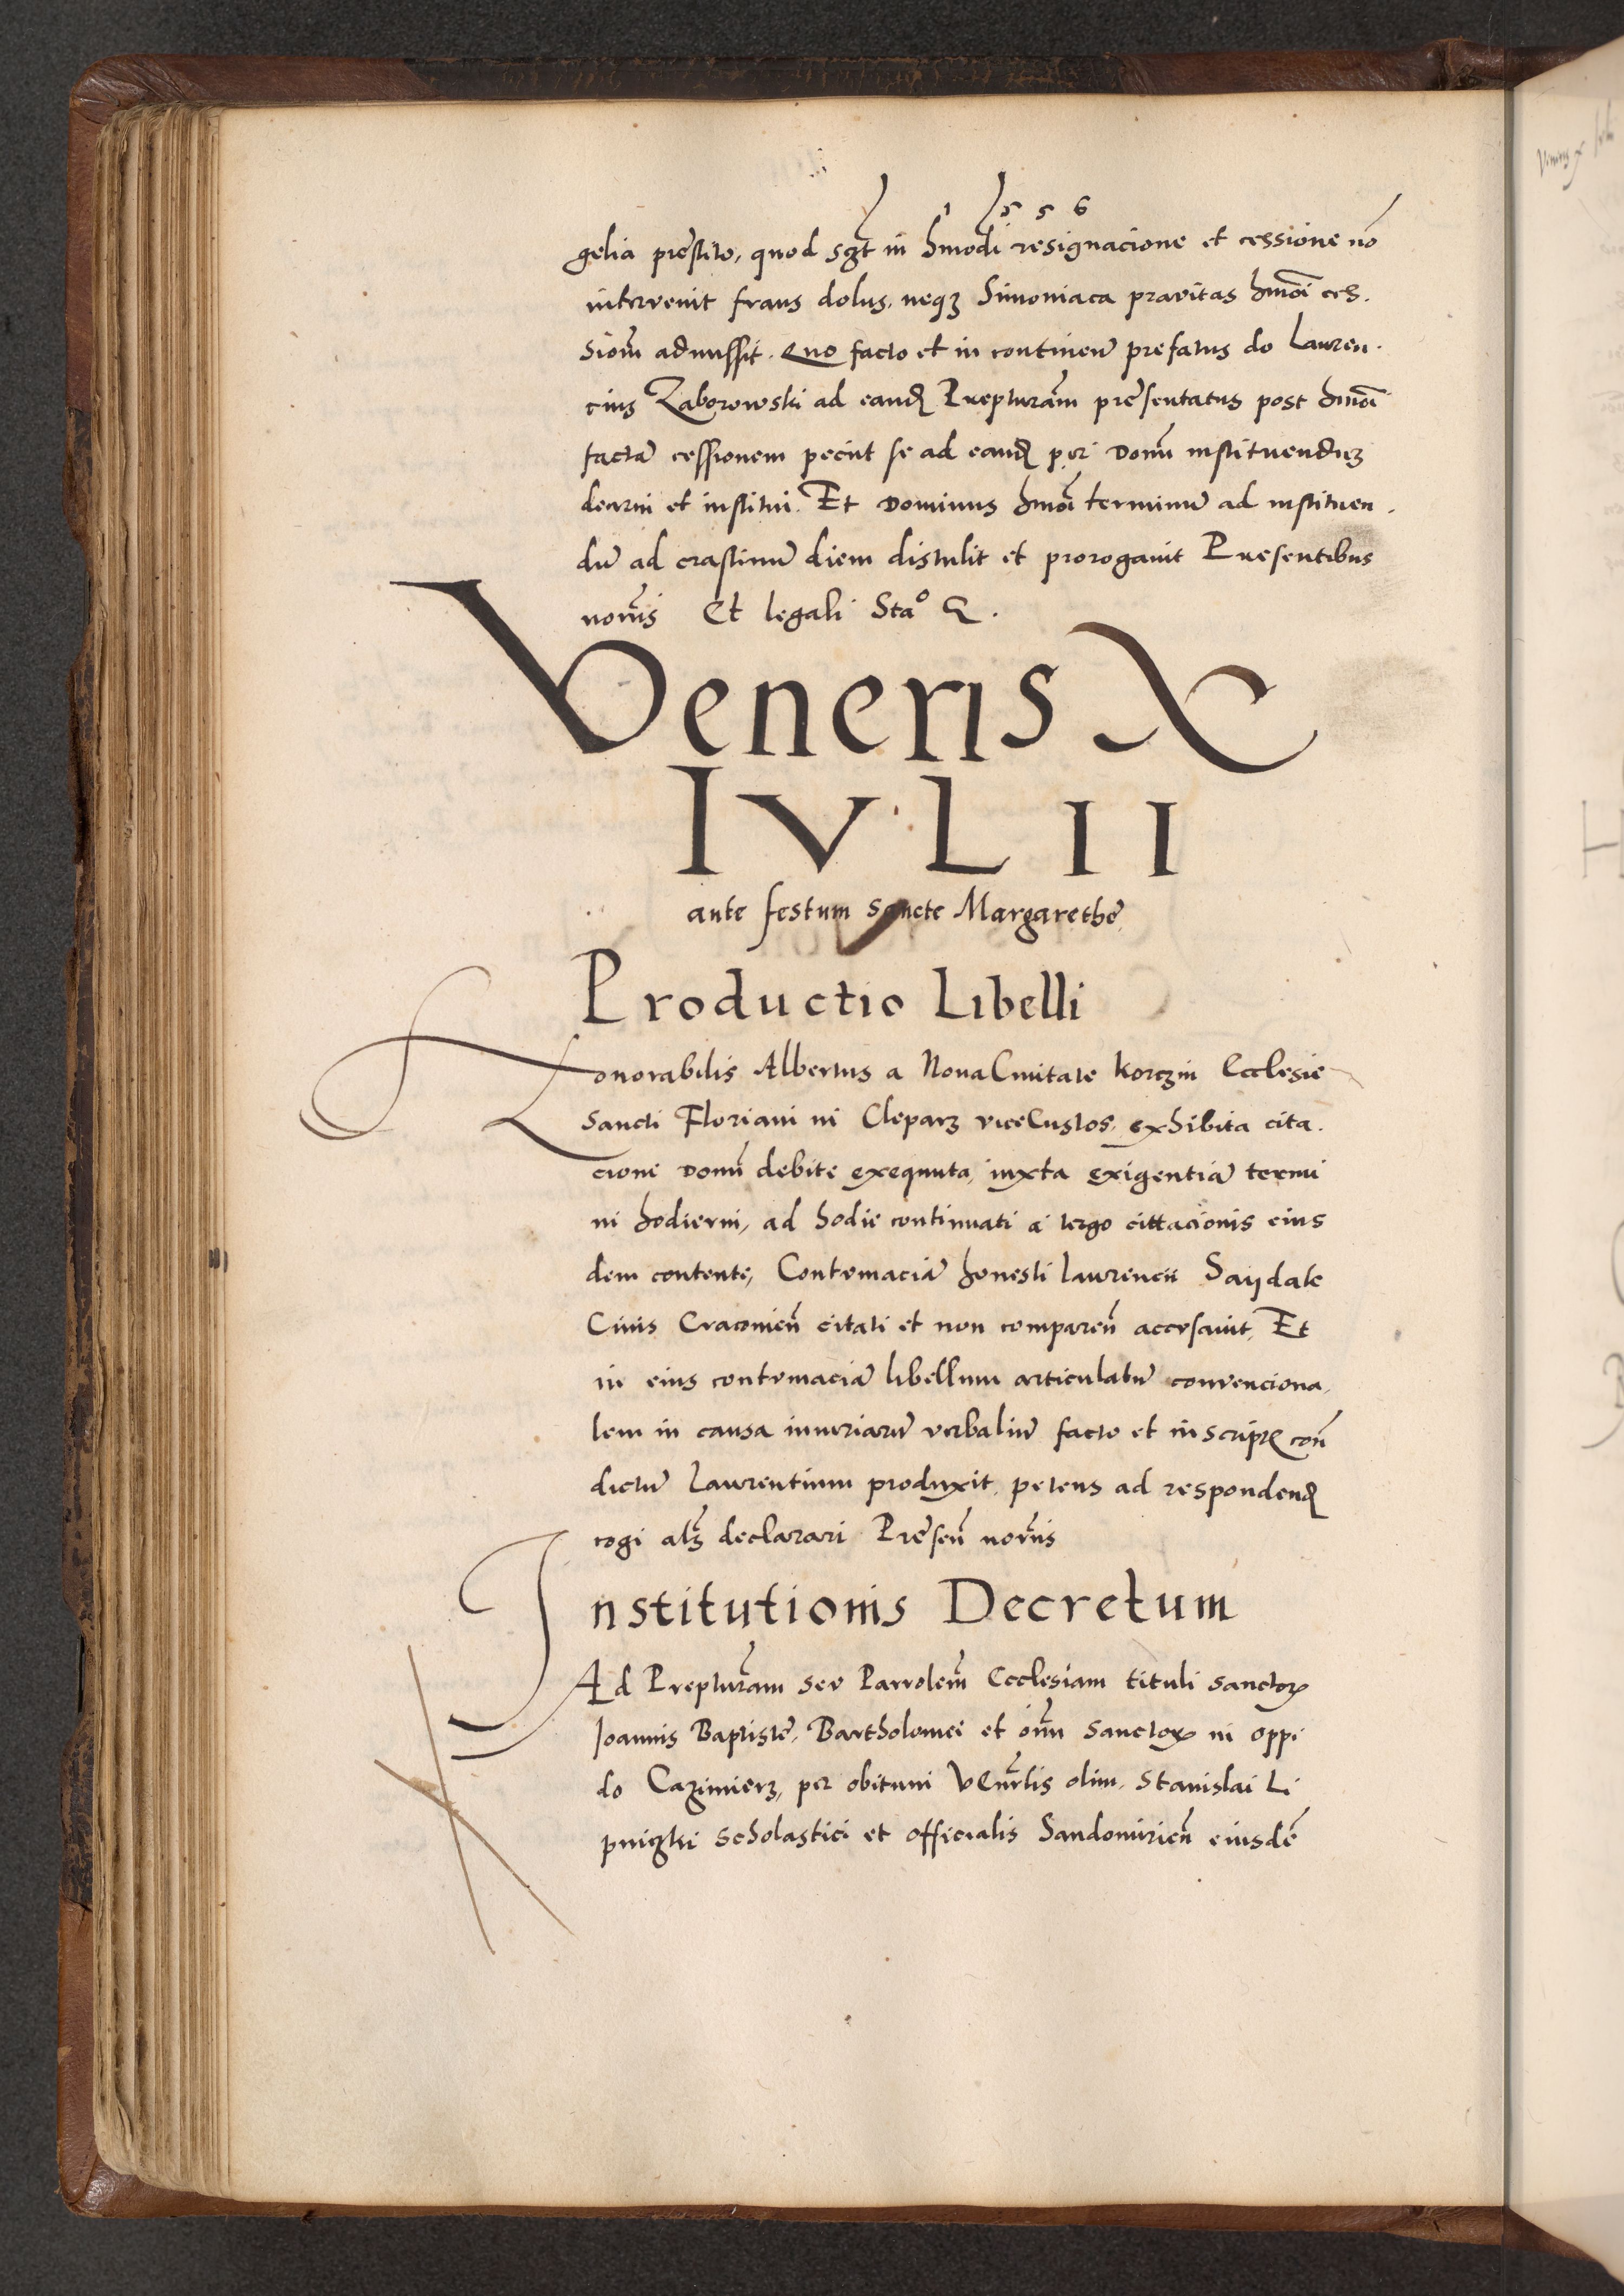 1 5 5 6
gelia prestito, quod in hmodi resignacione et cessione nō
intervenit fraus dolus, neqꝫ Simoniaca pravitas hmōi ces.
sionē admissit. Quo facto et in continenꝰ prefatus do Lauren.
cius Zaborowski ad eandꝫ Prepturam presentatus post hmōi
factā cessionem peciit se ad eandꝫ per Domī instituendūꝫ
decerni et institui. Et Dominus hmōi terminū ad instituen.
dū ad crastinū diem distulit et prorogavit Presentibus
norīs Et legali Sta⁰
Veneris X
IVLII
ante festum sancte Margarethe
Productio Libelli
Honorabilis Albertus a Nova Civitate Korczin Ecclesie
Sancti Floriani in Cleparꝫ viceCustos, exhibita cita.
cione Domī debite exequuta, iuxta exigentiā termi
ni hodierni, ad hodie continuati a tergo cittacionis eius
dem contente, Contumaciā honesti Laurencii Saydate
Civis Cracovieñ citati et non compareñ accusavit, Et
in eius contumaciā libellum articulatū convenciona,
lem in causa iniuriarū verbaliū facto et in scriptꝭ coñ
dictū Laurentium produxit, petens ad respondendꝫ
cogi alꝫ declarari Preseñ norīs
Institutionis Decretum
Ad Prepturam seu Parrolem Ecclesiam tituli sanctorꝫ
Ioannis Baptiste, Bartholomei et oīm Sanctorꝫ in oppi
do Cazimierꝫ, per obitum Venrlis olim, Stanislai Li
pniczki Scholastici et officialis Sandomirieñ eiusdē